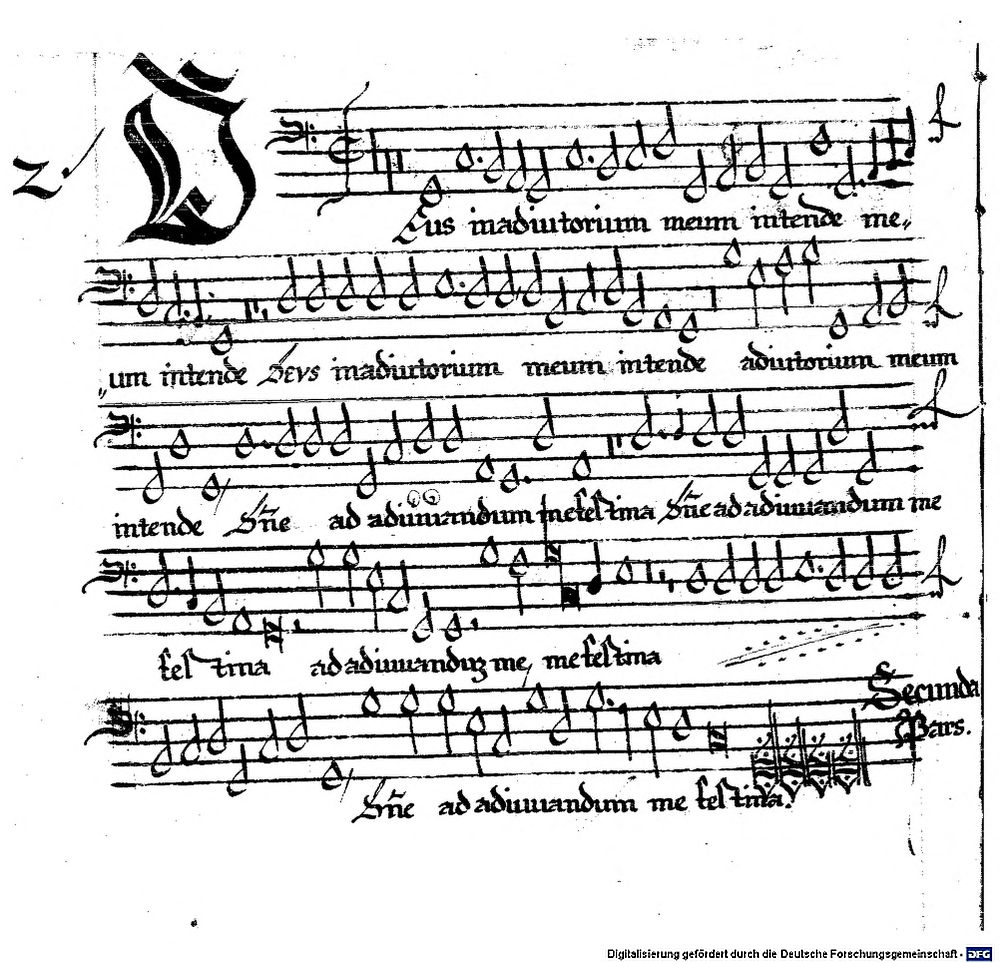 2.
Deus in adiutorium meum intende me„
„um intende Deus in adiutorium meum intende adiutorium meum
intende Dñe ad adiuuandum me festina Dñe ad adiuuandum me
festina ad adiuuanduȝ me, me festina
Secunda
Pars.
Dñe ad adiuuandum me festina.
Digitalisierung gefördert durch die Deutsche Forschungsgemeinschaft - DFG